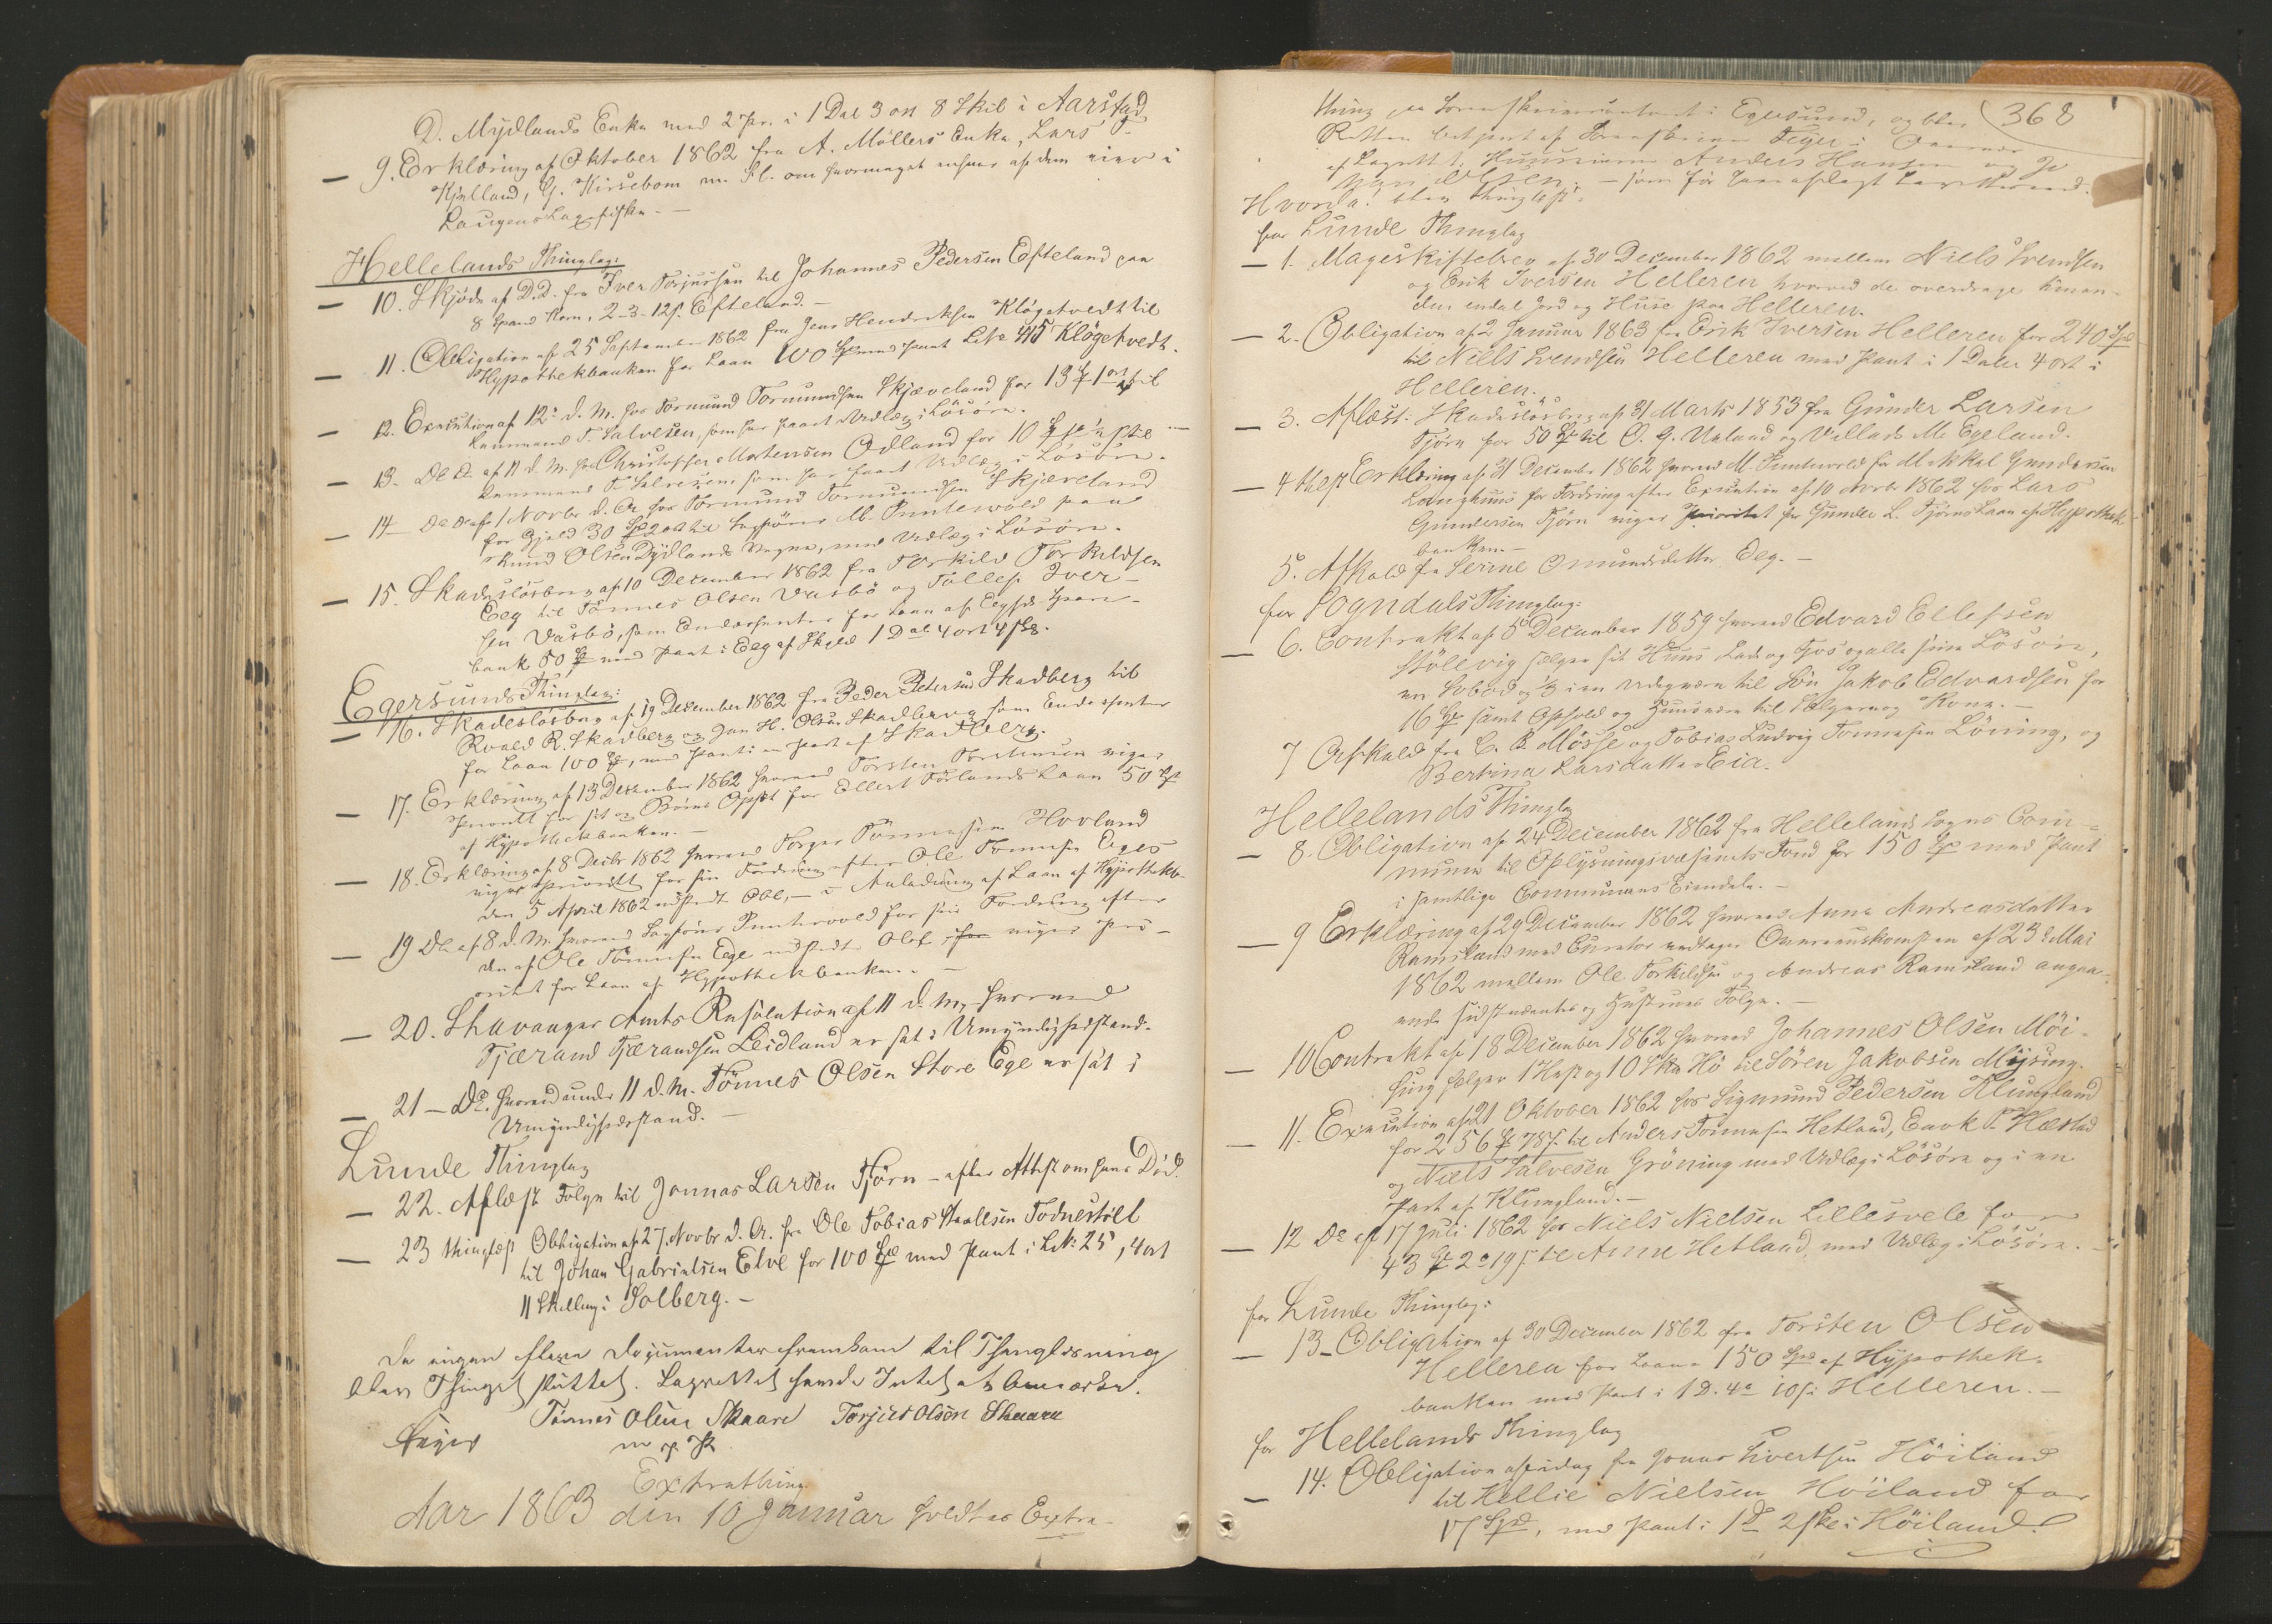 D. Mydlands Enke med 2 Pr. i 1 Dal 3 ort 8 Skil i Aarstad
9. Erklæring af Oktober 1862 fra A. Möllers Enke, Lars T.
Kjelland, G. Kirsebom m. Fl. om hvormeget enhver af dem eier i
Laugens Laxefiske. —
Hellelands Thinglag:
10. Skjöde af D.D. fra Iver Torjussen til Johannes Pedersen Efteland paa
8 Spand Korn, 2-3-12 s. Efteland. —
11. Obligation af 25 September 1862 fra Jens Hendriksen Klögetvedt til
Hypothekbanken for Laan 100 Spd med Pant Lit Klögetvedt.
12. Execution af 12 d. M. hos Tormund Tormundsen Skjæveland for 13 1 ort til
Kaufmand T. Salvesen, som har faaet Udlæg i Lösöre.
13. Do Do af 11 d. M. hos Christoffer Mortensen Ødland for 10 til
Kaufmand T. Salvesen, som har faaet Udlæg i Lösöre.
14 — Do Do af 1 Novbr d. A. hos Tormund Tormundsen Skjæveland
for Gjæld 30 Spd 2 ort til Sagförer M. Puntervold paa
Knud Olsen Dydlands Vegne, med Udlæg i Lösöre.
15. Skadeslösbrev af 10 December 1862 fra Torkild Torkildsen
Eeg til Tönnes Olsen Vasbö og Tollef Iver-
sen Vasbö, som Endossenter for Laan af Eegers Spare-
bank 50 Spd med Pant i Eeg af Skyld 1 Dal 4 ort 4 skg.
Egersunds Thinglag:
16. Skadeslösbrev af 19 December 1862 fra Peder Petersen Skadberg til
Roald R. Skadberg og Jan H. Olsen Skadberg som Endossenter
for Laan 100 Spd, med Pant i en Part af Skadberg.
17. Erklæring af 13 December 1862 hvorved Torsten viger
Prioritet for sit og Börns for Ellert Törlands Laan 50 Spd
af Hypothekbanken. —
18. Erklæring af 8 Decbr 1862 hvorved Torger Tönnesen Hovland
viger Prioritet for sin Fordring efter Ole Tönnesen Eges
den 5 April 1862 udstedt Obl, — i Anledning af Laan af Hypothekb.
19 Do af 8 d. M. hvorved Sagförer Puntervold for sin Fordring efter
den af Ole Tönnesen Ege udstedte Obl. for viger Pri-
oritet for Laan af Hypothekbanken. —
20. Stavanger Amts Resolution af 11 d. M. hvorved
Tjærand Tjærandsen Leidland er sat i Umyndighedsstand.
21 — Do. hvorved under 11 d. M. Tönnes Olsen Store Ege er sat i
Umyndighedsstand. —
Lunde Thinglag
22. Aflæst Folge til Jonnas Larsen Tjörn — efter Attest om hans Död.
23 thinglæst Obligation af 27. Novbr d. A. fra Ole Tobias Staalesen Todnestöll
til Johan Gabrielsen Elve for 100 Spd med Pant i L.N: 25, 4 ort
11 Skilling i Solberg. —
Da ingen flere Documenter fremkom til Thinglæsning
blev Thinget sluttet. Lagrettet havde Intet at bemærke.
Feyer Tönnes Olsen Skaare Torjus Olsen Skaare
m. p. P.
Extrathing.
Aar 1863 den 10 Januar holdtes Extra-
368
thing paa Sorenskriverkontoret i Egersund, og blev
Retten betjent af Sorenskriver Feyer i Overvær
af Lagrett: Huusmænd Anders Hansen og
Olsen. — som för have aflagt Lagrettesed.
Hvorda! blev thinglæst:
for Lunde Thinglag
1. Mageskiftebrev af 30 December 1862 mellem Niels Svendsen
og Erik Iversen Helleren hvorved de overdrage hinan-
den endel Jord og Huse paa Helleren.
2. Obligation af 2 Januar 1863 fra Erik Iversen Helleren for 240 Spd
til Niels Svendsen Helleren med Pant i 1 Daler 4 ort i
Helleren.
3. Aflæst: Skadeslösbrev af 31 Marts 1853 fra Gunder Larsen
Tjörn for 50 Spd til O. G. Ueland og Villads M. Egeland.
4 thlæst Erklæring af 31 December 1862 hvorved M. Puntervold for Mikkel Gundersen
Langhuus for Fordring efter Execution af 10 Novbr 1862 hos Lars
Gundersen Tjörn viger Prioritet for Gunder L. Tjörns Laan af Hypothek-
banken. —
5. Afkald fra Serine Omundsdatter Eeg. —
for Sogndals Thinglag:
6. Contrakt af 5 December 1859 hvorved Edvard Ellefsen
Stöllevig sælger sit Huus Lade og Fjös og alle sine Lösöre,
en Sobod og ½ i en til Sön Jakob Edvardsen for
16 Spd samt Ophold og Huusvære til Sælgeren og Kone. —
7 Afkald fra C. B. Mosse og Tobias Ludvig Tonnesen Löning, og
Bertina Larsdatter Eia.
Hellelands Thinglag
8. Obligation af 24 December 1862 fra Hellelands Sogns Com-
mune til Oplysningsvæsenets Fond for 150 Spd med Pant
i samtlige Communens Eiendele. —
9 Erklæring af 29 December 1862 hvorved Anne Andreasdatter
Ramsland med Curator vedtager Overeenskomsten af 23 Mai
1862 mellem Ole Torkildsen og Andreas Ramsland angaa-
ende sidstnævntes og Hustrues Folge. —
10 Contrakt af 18 December 1862 hvorved Johannes Olsen Möi-
sing sælger 1 Hest og 10 Skn Hö til Sören Jakobsen Mysing.
11. Execution af 21 Oktober 1862 hos Sigmund Pedersen Klungland
for 256 Spd 78 s. til Anders Tönnesen Hetland, Enok P. Hæstad
og Niels Salvesen Gröning med Udlæg i Lösöre og i en
Part af Klungland. —
12 Do af 17 Juli 1862 hos Niels Nielsen Lillesvele for
43 Spd 2 o 19 s. til Anne Hetland, med Udlæg i Lösöre. —
for Lunde Thinglag:
13 — Obligation af 30 December 1862 fra Torsten Olsen
Helleren for Laan 150 Spd af Hypothek-
banken med Pant i 1 D. 4 o 10 s. i Helleren. —
for Hellelands Thinglag
14. Obligation af idag fra Jonas Sivertsen Höiland
til Hellie Nielsen Höiland for
Spd, med Pant i 1 D 2 ske i Höiland.